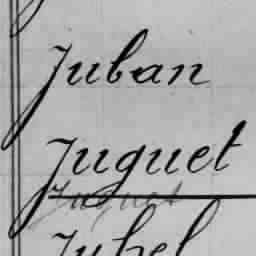 Juban
Juguet
Juguet
Juhel